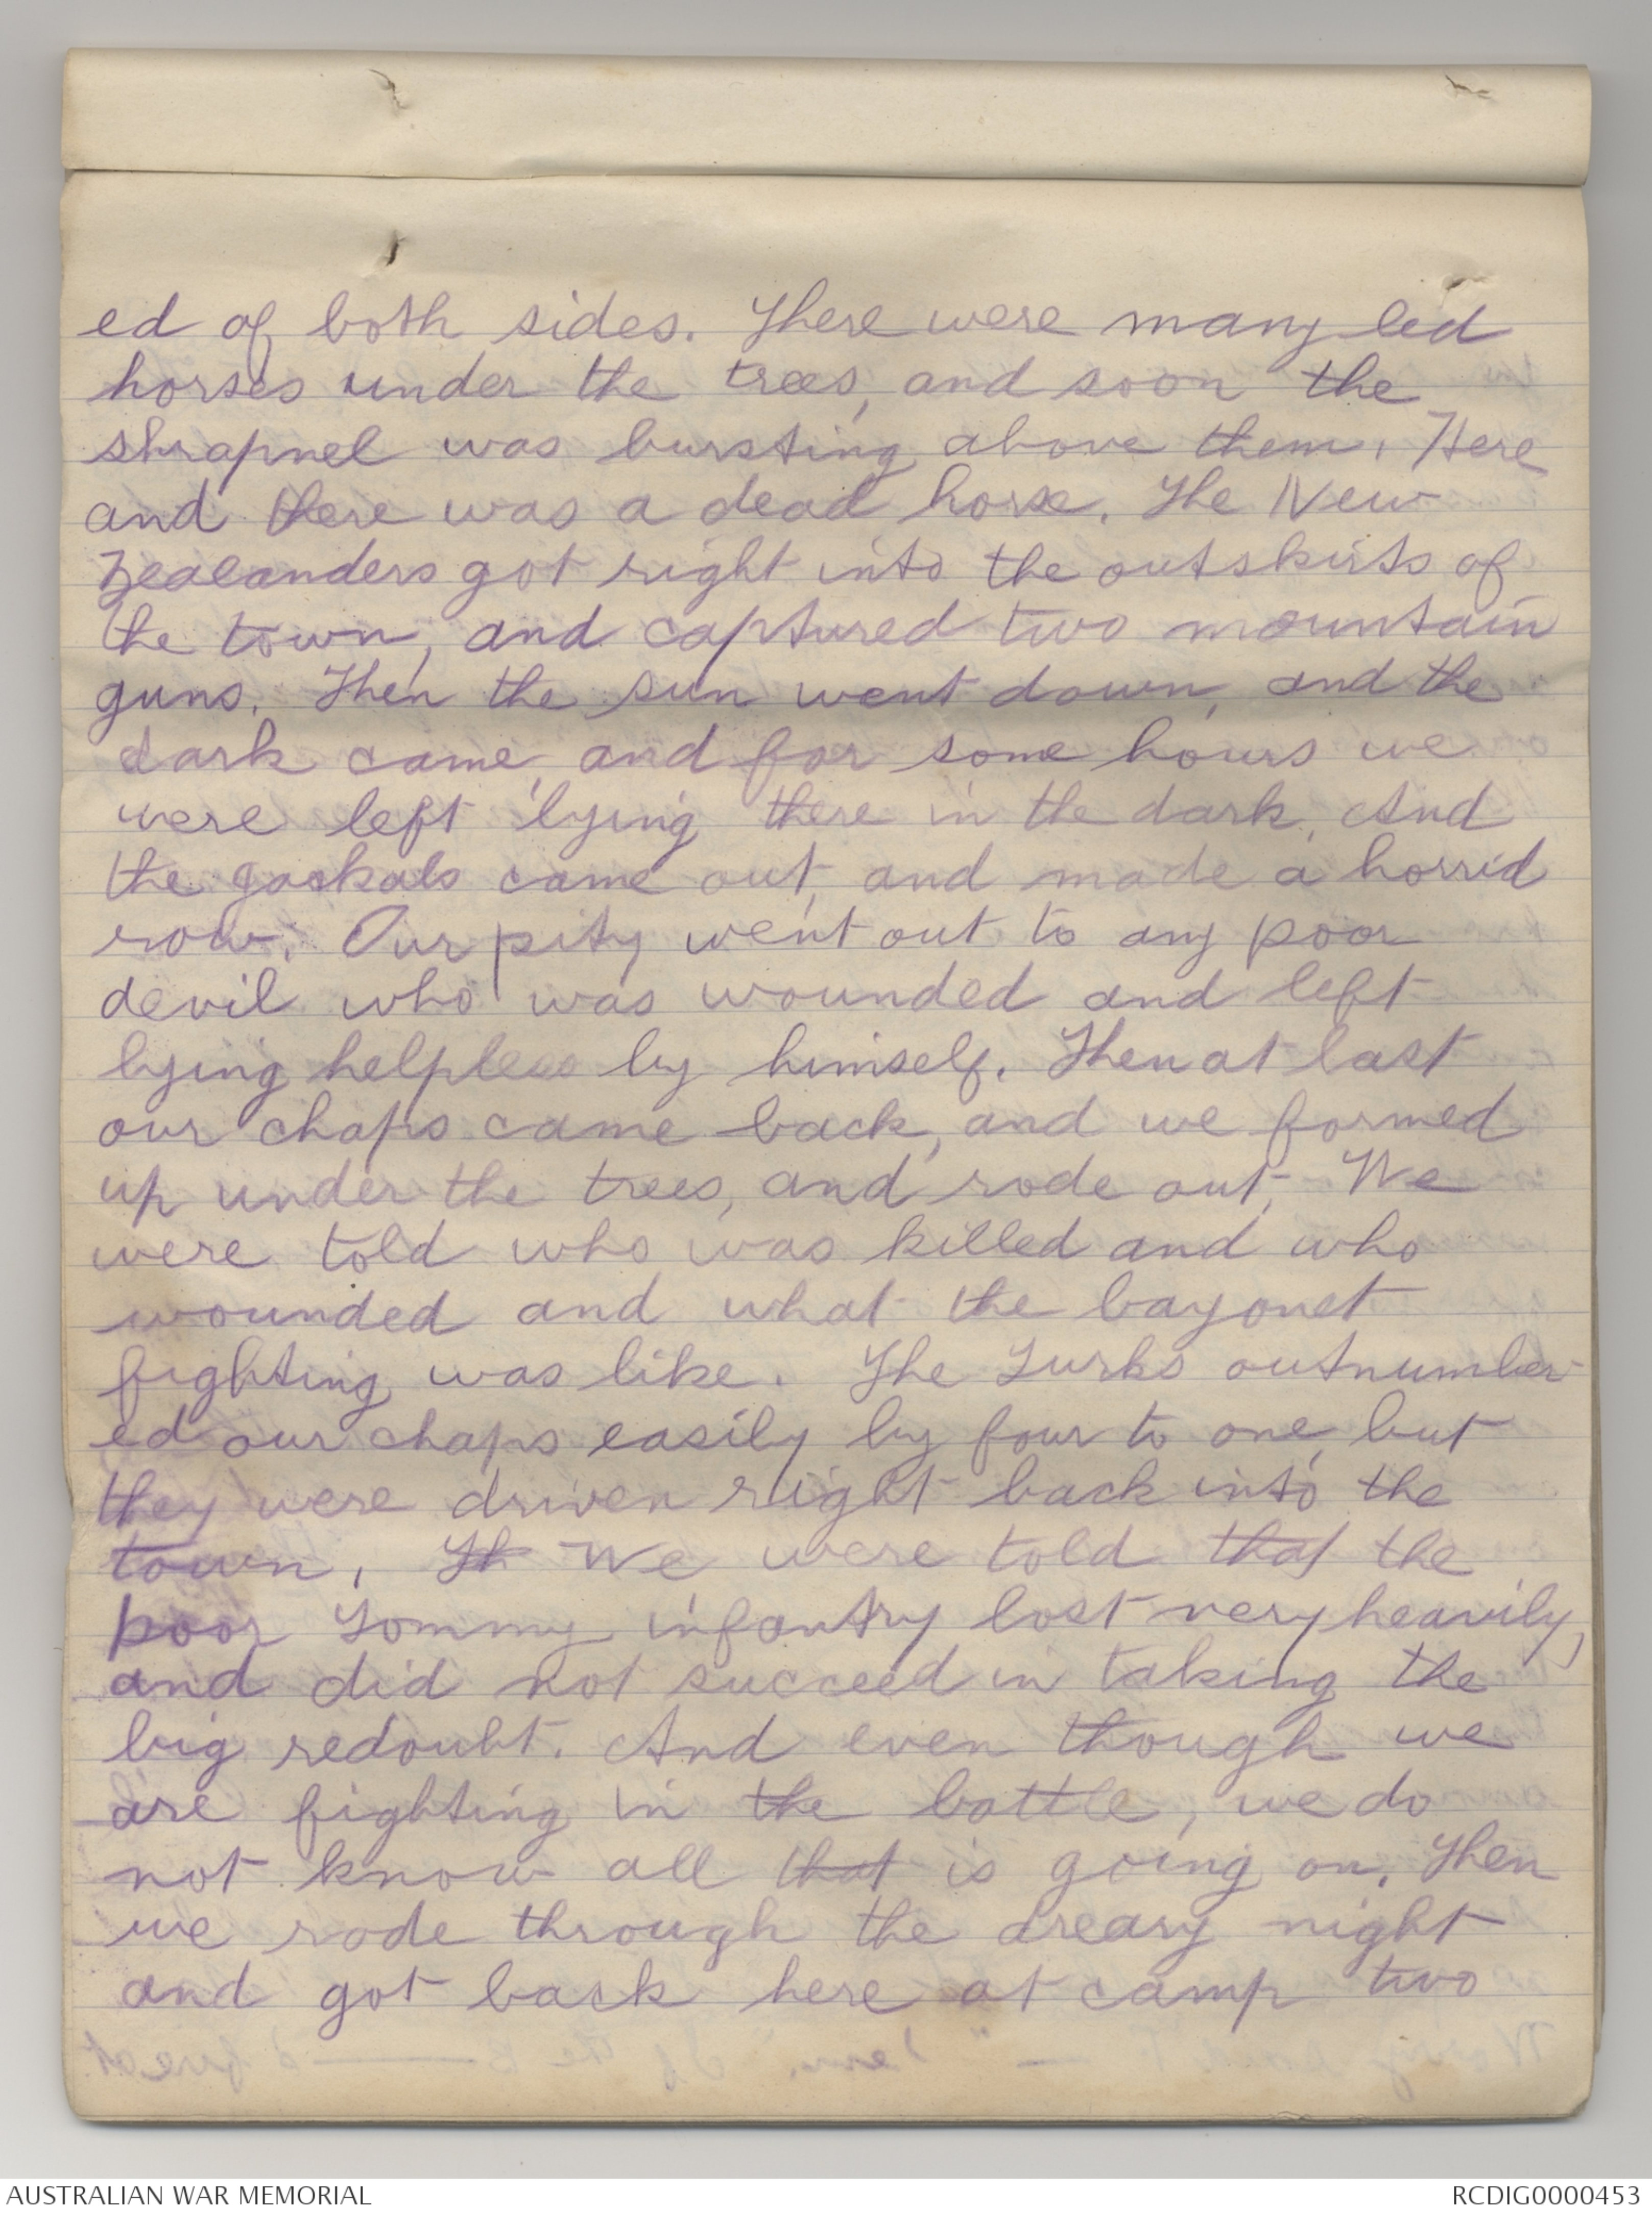 ed of both sides. There were many led
horses under the trees, and soon the
shrapnel was bursting above them. Here
and there was a dead horse. The New
Zealanders got right into the outskirts of
the town, and captured two mountain
guns. Then the sun went down, and the
dark came, and for some hours we
were left lying there in the dark. And
the jackals came out, and made a horrid
row. Our pity went out to any poor
devil who was wounded and left
lying helpless by himself. Then at last
our chaps came back, and we formed
up under the trees, and rode out. We
were told who was killed and who
wounded and what the bayonet
fighting was like. The Turks outnumber-
ed our chaps easily by four to one, but
they were driven right back into the
town. Th We were told that the
poor Tommy infantry lost very heavily,
and did not succeed in taking the
big redoubt. And even though we
are fighting in the battle, we do
not know all that is going on. Then
we rode through the dreary night
and got back here at camp two
AUSTRALIAN WAR MEMORIAL
RCDIG0000453